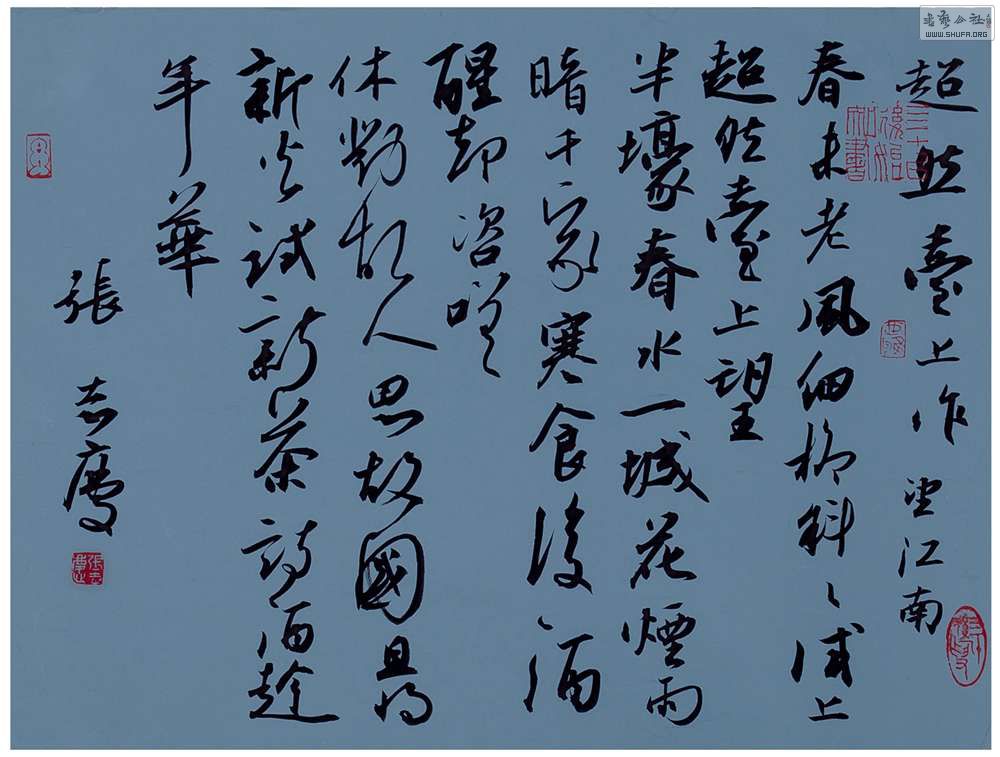 超然臺上作 望江南
春未老風細柳斜〻試上
超然臺上望
半壕春水一城花煙雨
暗千家寒食後酒
醒却咨嗟
休對故人思故國且將
新火試新茶詩酒趁
年華
張志慶
書藝公社
WWW.SHUFA.ORG